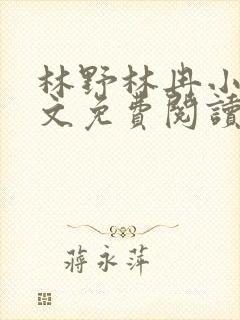 林野林冉小
文免費閱讀
蔣永萍